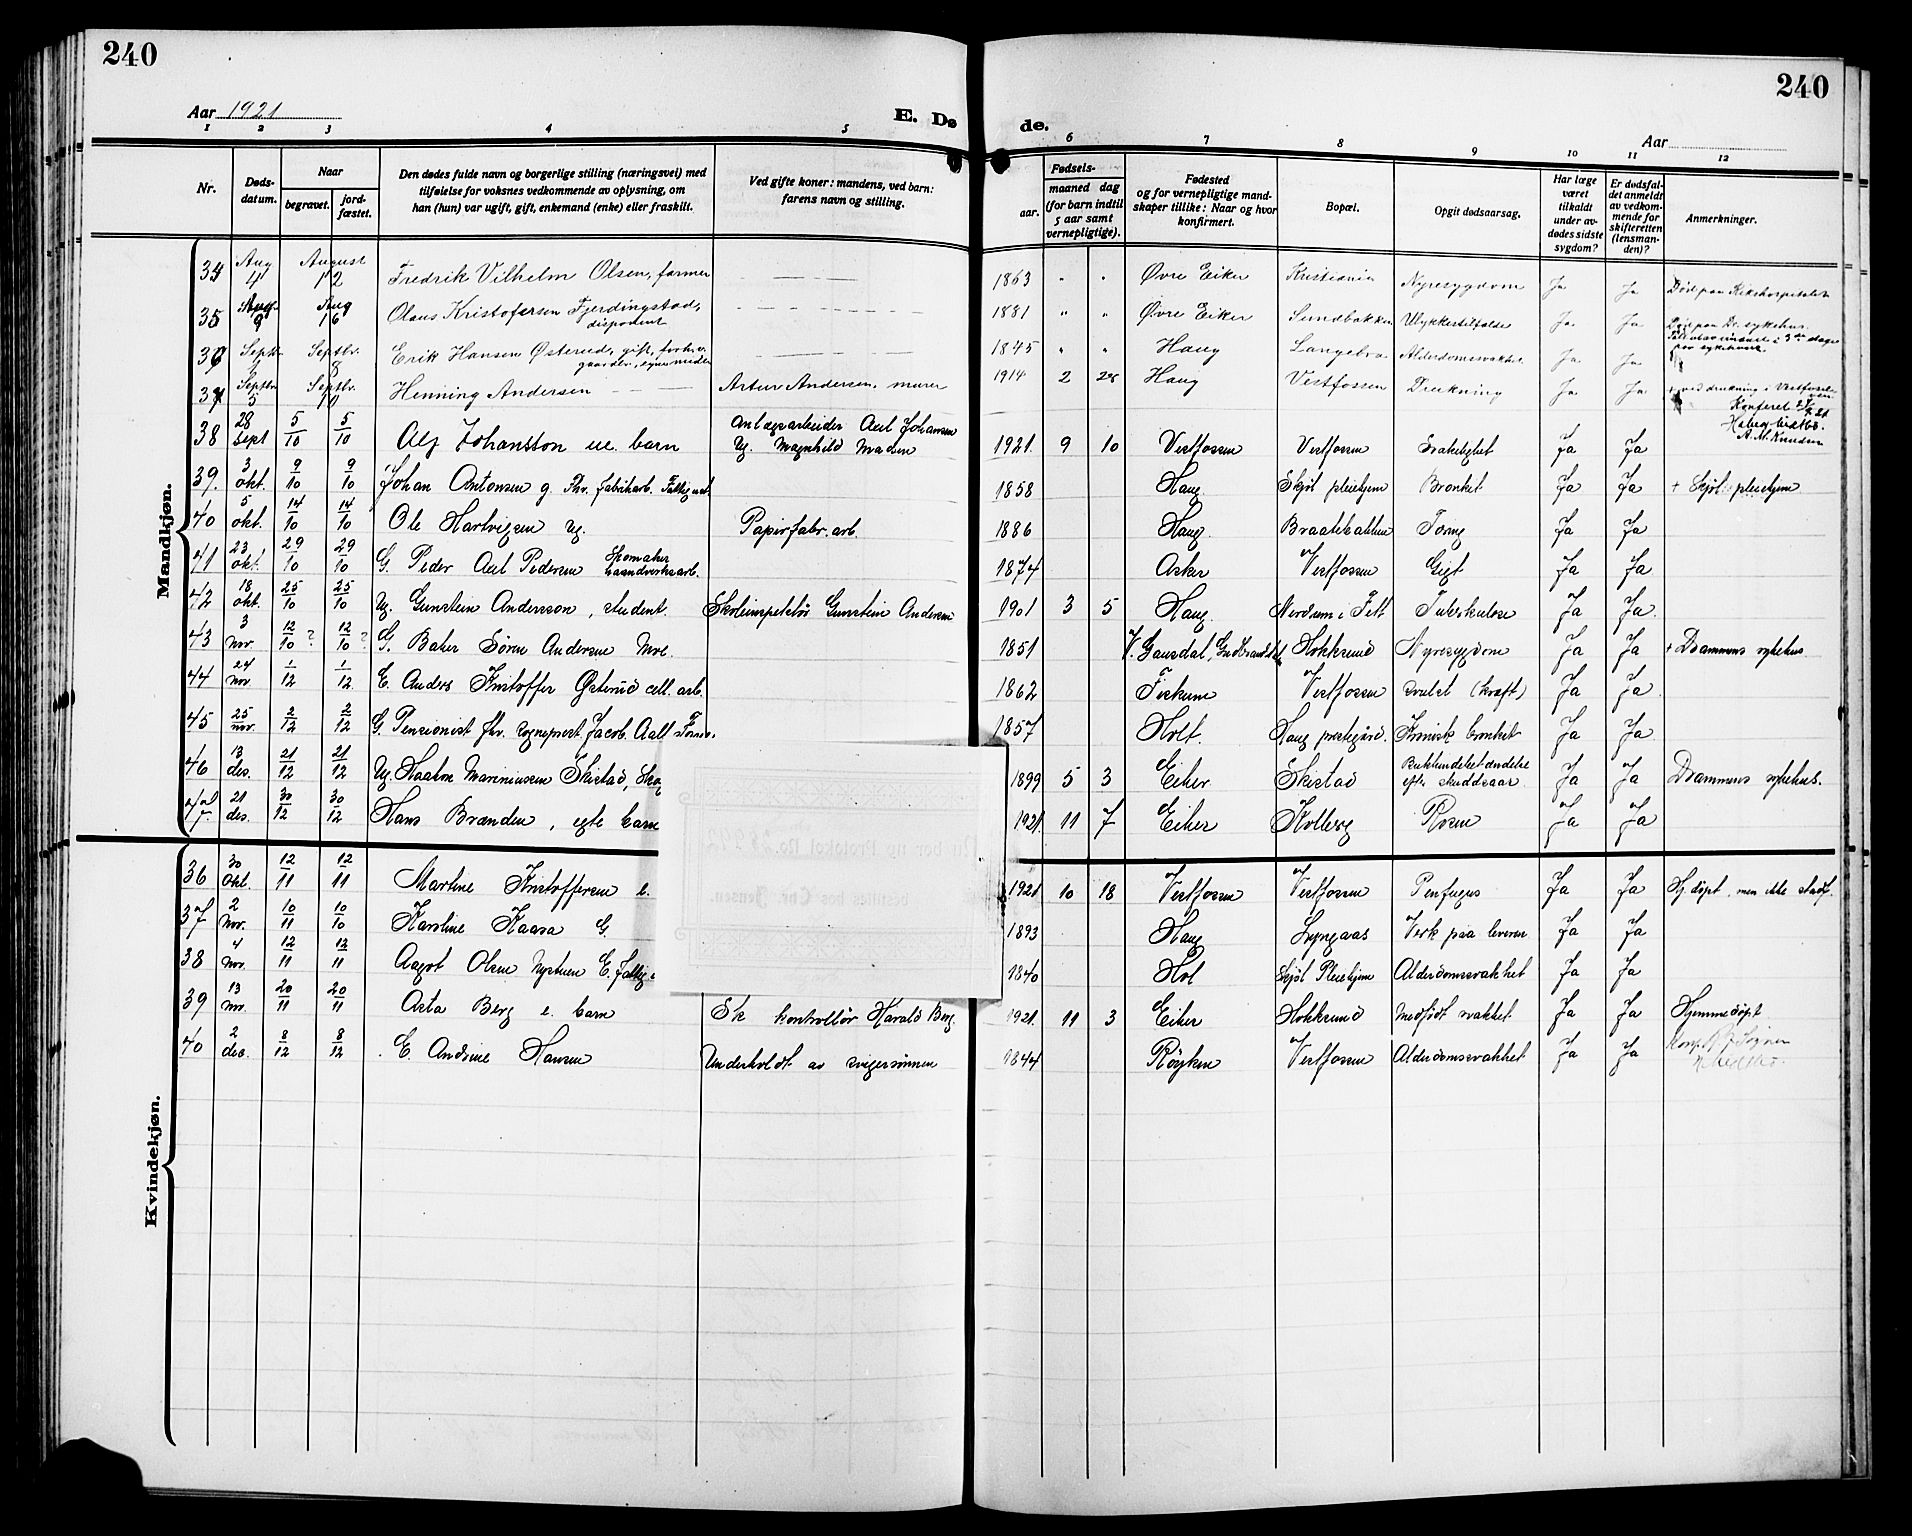 240
240
Aar 1921
E. Dø
de.
Aar
1 2 3 4 5 6 7 8 9 10 11 12
Nr.
Døds-
datum.
Naar
begravet.
jord-
fæstet.
Den dødes fulde navn og borgerlige stilling (næringsvei) med
tilføielse for voksnes vedkommende av oplysning, om
han (hun) var ugift, gift, enkemand (enke) eller fraskilt.
Ved gifte koner: mandens, ved barn:
farens navn og stilling.
Fødsels-
aar.
maaned dag
(for barn indtil
5 aar samt
vernepligtige).
Fødested
og for vernepligtige mand-
skaper tillike: Naar og hvor
konfirmert.
Bopæl.
Opgit dødsaarsag.
Har læge
været
tilkaldt
under av-
dødes sidste
sygdom?
Er dødsfal-
det anmeldt
av vedkom-
mende for
skifteretten
(lensman-
den)?
Anmerkninger.
Mandkjøn.
34 Aug 4 August 12 Fredrik Vilhelm Olsen, farmer — — — 1863 " " Øvre Eiker Kristiania Nyresygdom Ja Ja Død paa Rikshospitalet
35 Aug 9 Aug 16 Olaus Kristofersen Fjerdingstad, disponent — — — 1881 " " Øvre Eiker Sundbakken Ulykkestilfælde Ja Ja Død paa Dr. sykehus.
36 Septbr 1 Septbr. 8 Erik Hansen Østerud, gift, forhv. gaardbr. — — — 1845 " " Haug Langebro Alderdomssvakhet Ja Ja
37 Septbr 5 Septbr. 10 Henning Andersen — — Artur Andersen, murer 1914 2 28 Haug Vestfossen Drukning Ja Ja + ved drukning i Vestfosselven
Konferet
A. M. Knudsen
38 28 Sept 5/10 5/10 Alf Johanston ue. barn Anlægsarbeider Aul Johansen Ug. Magnhild Maden 1921. 9 10 Vestfossen Vestfossen Svakelighet Ja Ja
39. 3 okt. 9/10 9/10 Johan Antonsen g. Fhv. fabrikarb. Fattigunt. 1858 Haug. Skjøl pleiehjem Bronkit Ja Ja + Skjøl pleiehjem
40 5 okt. 14/10 14/10 Ole Hartvigsen ug. Papirfabr. arb. 1886 Haug. Braatebakken Ja Ja
41 23 okt. 29/10 29/10 G. Peder Aul Pedersen Skomaker haandverksarb. 1874 Asker Vestfossen Gigt Ja Ja
42 18 okt. 25/10 25/10 Ug. Gunstein Andersson, student. Skoleinspektør Gunstein Andersen 1901 3 5 Haug. Nordum i Fett Tuberkulose Ja Ja.
43 3 nov. 12/10 ? 12/10 ? G. Baker Søren Andersen Moe. 1851 V. Gausdal, Gudbrandsdal Hokksund Nyresygdom Ja Ja + Drammens sykehus.
44 24 nov 1/12 1/12. E. Anders Kristoffer Østerud cell. arb. 1862 Fiskum Vestfossen svulst (kræft) Ja Ja.
45 25 nov. 2/12 2/12 G. Pensionist fhv. sogneprest Jacob Aall 1857 Holt. Haug prestegård. Kronisk bronkit Ja Ja.
46 13 des. 21/12 21/12 Ug. Haakon Marinussen Skistad, 1899 5 3 Eiker Skistad Bukhindebetændelse efter skuddsaar Ja Ja Drammens sykehus.
47 21 des. 30/12 30/12 Hans Brænden, egte barn 1921. 11 7 Eiker Kolberg Rosen Ja Ja
Kvindekjøn.
36 30 Okt. 12/11 12/11 Martine Kristoffersen e. 1921 10 18 Vestfossen Vestfossen Penfugus Ja Ja Hj.døpt, men ikke stadf.
37 2 Nov. 10/11 10/10 Karoline Kaasa G 1893 Haug Lyngaas Verk paa leveren Ja Ja
38 4 nov. 12/11 12/11 Aagot Olsen Nystuen E. Fattig 1840 Hol Skjøl Pleiehjem Alderdomssvakhet Ja Ja
39 13 nov. 20/11 20/11 Asta Berg e. barn Sk kontrollør Harald Berg. 1921. 11 3 Eiker Hokksund Medfødt svakhet Ja Ja Hjemmedøpt
40 2 dec. 8/12 8/12 E. Andrine Hansen Underholdt av svigersønnen 1844 Røyken Vestfossen Alderdomssvakhet Ja Ja